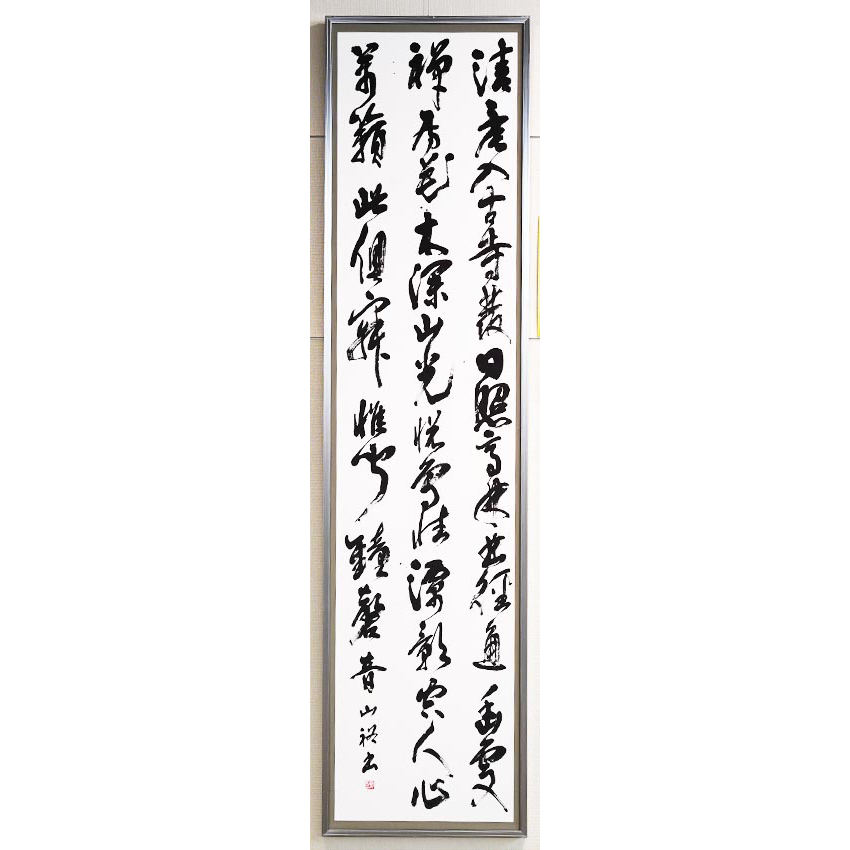 清晨入古寺初日照高林竹徑通幽處
禪房花木深山光悦鳥性潭影空人心
萬籟此俱寂惟聞鐘磬音 山裕書